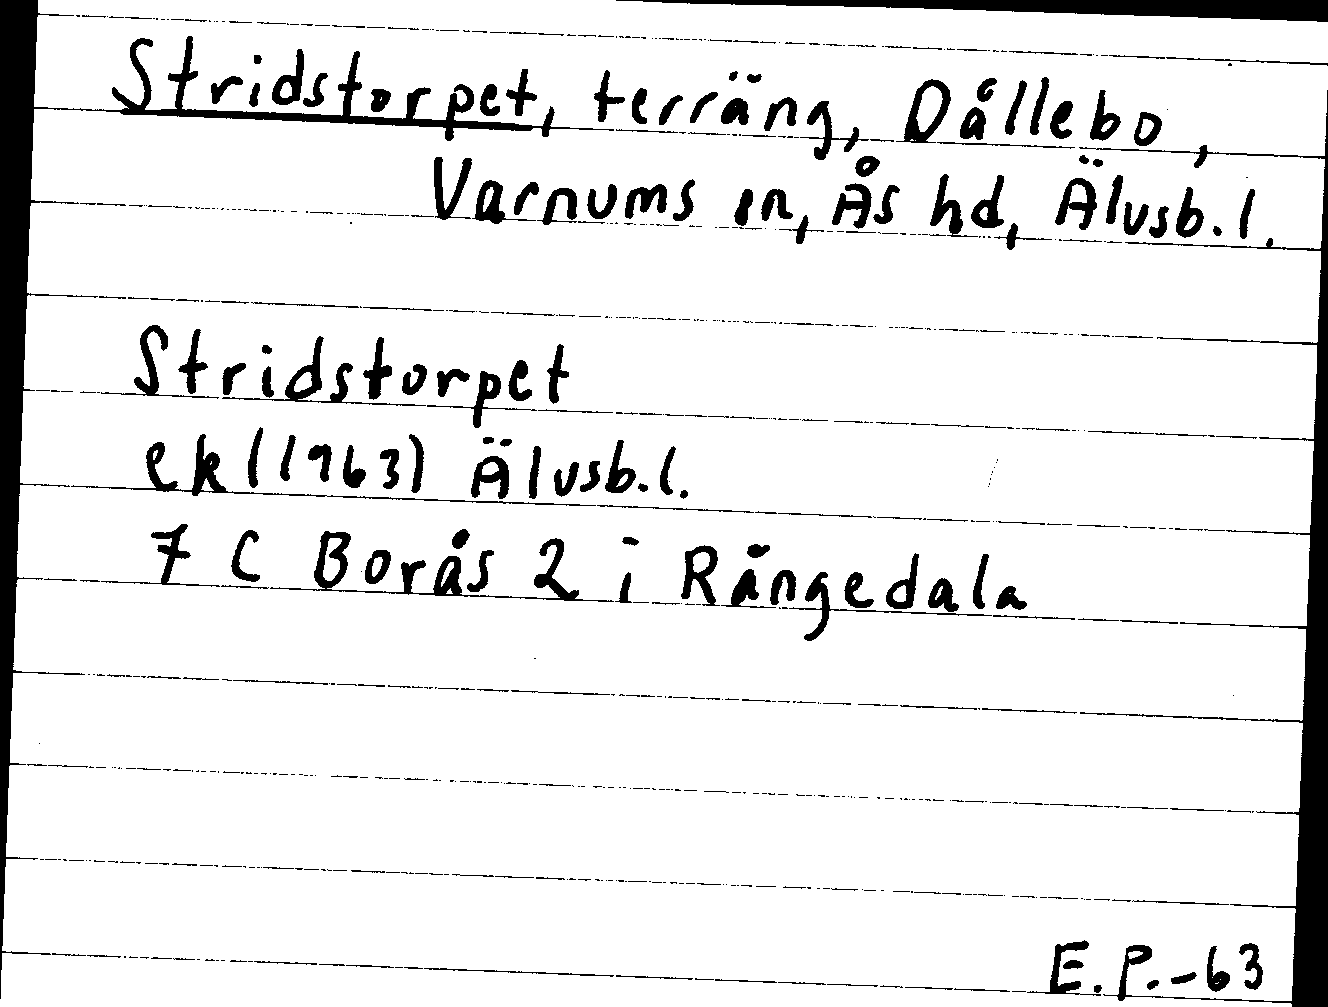 Stridstorpet, terräng, Dållebo,
Varnums sn, Ås hd, Älvsb. l.
Stridstorpet
ek (1963) Älvsb. l.
7 C Borås 2 i Rångedala
E. P. -63